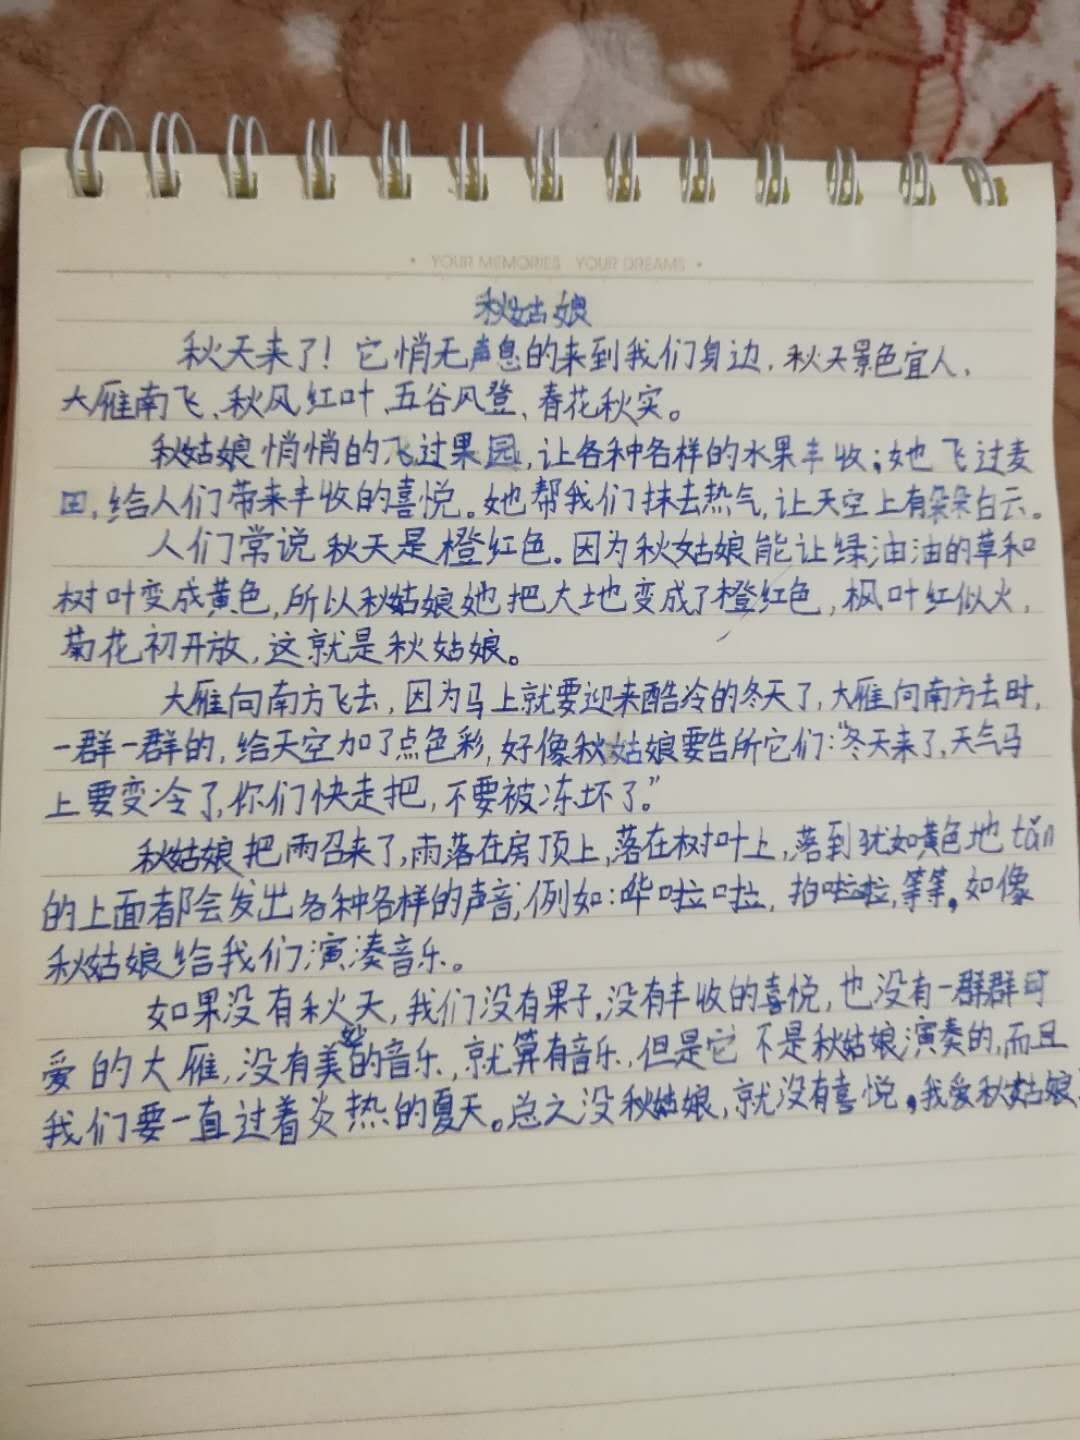 • YOUR MEMORIES YOUR DREAMS •
秋姑娘
秋天来了！它悄无声息的来到我们身边，秋天景色宜人，
大雁南飞、秋风红叶、五谷风登、春花秋实。
秋姑娘悄悄的飞过果园，让各种各样的水果丰收；她飞过麦
田，给人们带来丰收的喜悦。她帮我们抹去热气，让天空上有朵朵白云。
人们常说秋天是橙红色。因为秋姑娘能让绿油油的草和
树叶变成黄色，所以秋姑娘她把大地变成了橙红色，枫叶红似火，
菊花初开放，这就是秋姑娘。
大雁向南方飞去，因为马上就要迎来酷冷的冬天了，大雁向南方去时，
一群一群的，给天空加了点色彩，好像秋姑娘要告所它们：“冬天来了，天气马
上要变冷了，你们快走把，不要被冻坏了。”
秋姑娘把雨召来了，雨落在房顶上，落在树叶上，落到犹如黄色地tǎn
的上面都会发出各种各样的声音，例如：哗啦啦，拍啦啦，等等。如像
秋姑娘给我们演凑音乐。
如果没有秋天，我们没有果子，没有丰收的喜悦，也没有一群群可
爱的大雁，没有美妙的音乐，就算有音乐，但是它不是秋姑娘演奏的，而且
我们要一直过着炎热的夏天。总之没秋姑娘，就没有喜悦。我爱秋姑娘